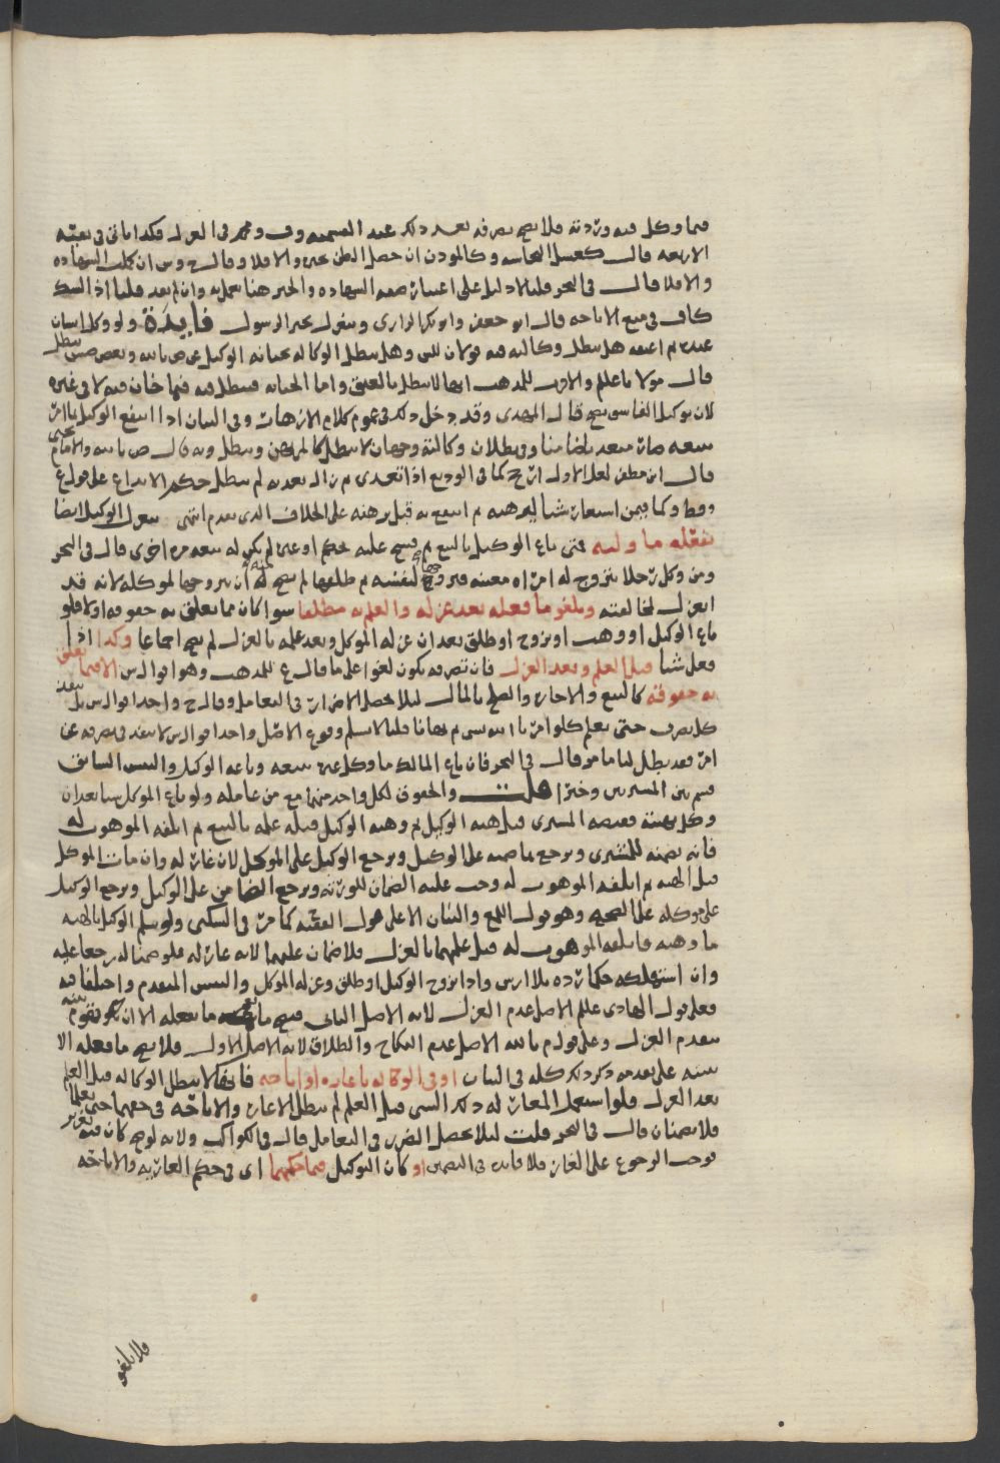 فيما وكل فيه وردته فلا يصح تصرفه بعد ذلك عند
الاربعه قال كغسل النجاسه وكالموذن ان حصل الظن بخبره والا فلا وقال
والا فلا قال في البحر قلنا لا دليل على اعتبار صفه الشهاده والخبر هنا يعمل به وان لم يعد قلنا اذ الشك
كاف في منع الاباحه قال ابو جعفر وابو بكر الرازي وينعزل بخبر الرسول فايدة ولو وكل انسان
عبده ثم اعتقه هل تبطل وكالته فيه قولان للش وهل تبطل الوكاله بخيانه الوكيل
قال مولانا علم والاقرب للمذهب انها لا تبطل بالعتق واما الخيانه فتبطل فيه فيما خان فيه لا في غيره
لان توكيل الفاسق يصح قال المهدي وقد دخل ذلك في عموم كلام الازهار وفي البيان اذا انتفع الوكيل بما امر
ببيعه صار متعديا ضامنا وفي بطلان وكالته وجهان لا تبطل كالمرتهن وتبطل وبه قال ص بالله والامام يحيى
قال ابن مظفر لعل الاول ارجح كما في الوديع اذا تعدى ثم زال تعديه لم يبطل حكم الايداع على قول ع
وط وكما فيمن استعار شيا ليرهنه ثم انتفع به قبل يرهنه على الخلاف الذي تقدم انتهى ينعزل الوكيل ايضا
بفعله ما وليه فمتى باع الوكيل بالبيع ثم فسخ عليه بحكم او غيره لم يكن له بيعه مره اخرى قال في البحر
ومن وكل رجلا يتزوج له امراه معينه فتزوجها لنفسه ثم طلقها لم يصح منه أن يتزوجها لموكله لانه قد
انعزل لمخالفته ويلغو ما فعله بعد عزله والعلم به مطلقا سوا كان مما يتعلق به حقوقه او لا فلو
باع الوكيل او وهب او تزوج او طلق بعد ان عزله الموكل وبعد علمه بالعزل لم يصح اجماعا وكذا اذا
فعل شيا قبل العلم وبعد العزل فان تصرفه يكون لغوا على ما قال ع للمذهب وهو احد قولي الش الا فيما يتعلق
به حقوقه كالبيع والاجاره والصلح بالمال ليلا يحصل الاضرار في التعامل وقال ح واحد قولي الش بل ينفذ
كل تصرف حتى يعلم كاوامر الله نسي ثم نهانا قلنا لا نسلم وقوع الاصل واحد قولي الش لا ينفذ في تصرفه عن
امر قد بطل لنا ما مر قال في البحر فان باع المالك ما وكل غيره ببيعه وباعه الوكيل والتبس السابق
قسم بين المشتريين وخيرا قلت والحقوق لكل واحد منهما مع من عامله ولو باع الموكل شيا بعد ان
وكل بهبته فقبضه المشتري قبل هبه الوكيل ثم وهبه الوكيل قبل علمه بالبيع ثم اتلفه الموهوب له
فانه يضمنه للمشتري ويرجع بما ضمنه على الوكيل ويرجع الوكيل على الموكل لانه غار له وان مات الموكل
قبل الهبه ثم اتلفه الموهوب له وجب عليه الضمان للورثه ويرجع الضامن على الوكيل ويرجع الوكيل
على موكله على الصحيح وهو قول اللمع والبيان الا على قول الفقيه كما مر في السكنى ولو سلم الوكيل بالهبه
ما وهبه فاتلفه الموهوب له قبل علمهما بالعزل فلا ضمان عليهما لانه غار له فلو ضمنا له رجعا عليه
وان استهلكه حكما رده بلا ارش واذا تزوج الوكيل او طلق وعزله الموكل والتبس المتقدم واختلفا فيه
فعلى قول الهادي علم الاصل عدم العزل لانه الاصل الثاني فيصح ما فعله الا ان تقوم بينه
بتقدم العزل وعلى قول م بالله الاصل عدم النكاح والطلاق لانه الاصل الاول فلا يصح ما فعله الا
ببينه على تقدمه ذكر ذلك كله في البيان او في الوكاله باعاره او اباحه فانها لا تبطل الوكاله قبل العلم
بعد العزل فلو استعمل المعار له ذلك الشي قبل العلم لم تبطل الاعاره والاباحه في حقهما حتى يعلما
فلا يضمنان قال في البحر قلت ليلا يحصل الضرر في التعامل قال في الكواكب ولانه لو صح كان فيه تغرير
فوجب الرجوع على الغار فلا فايده في التضمين او كان التوكيل فيما حكمهما اي في حكم العاريه والاباحه
فلا يلغو